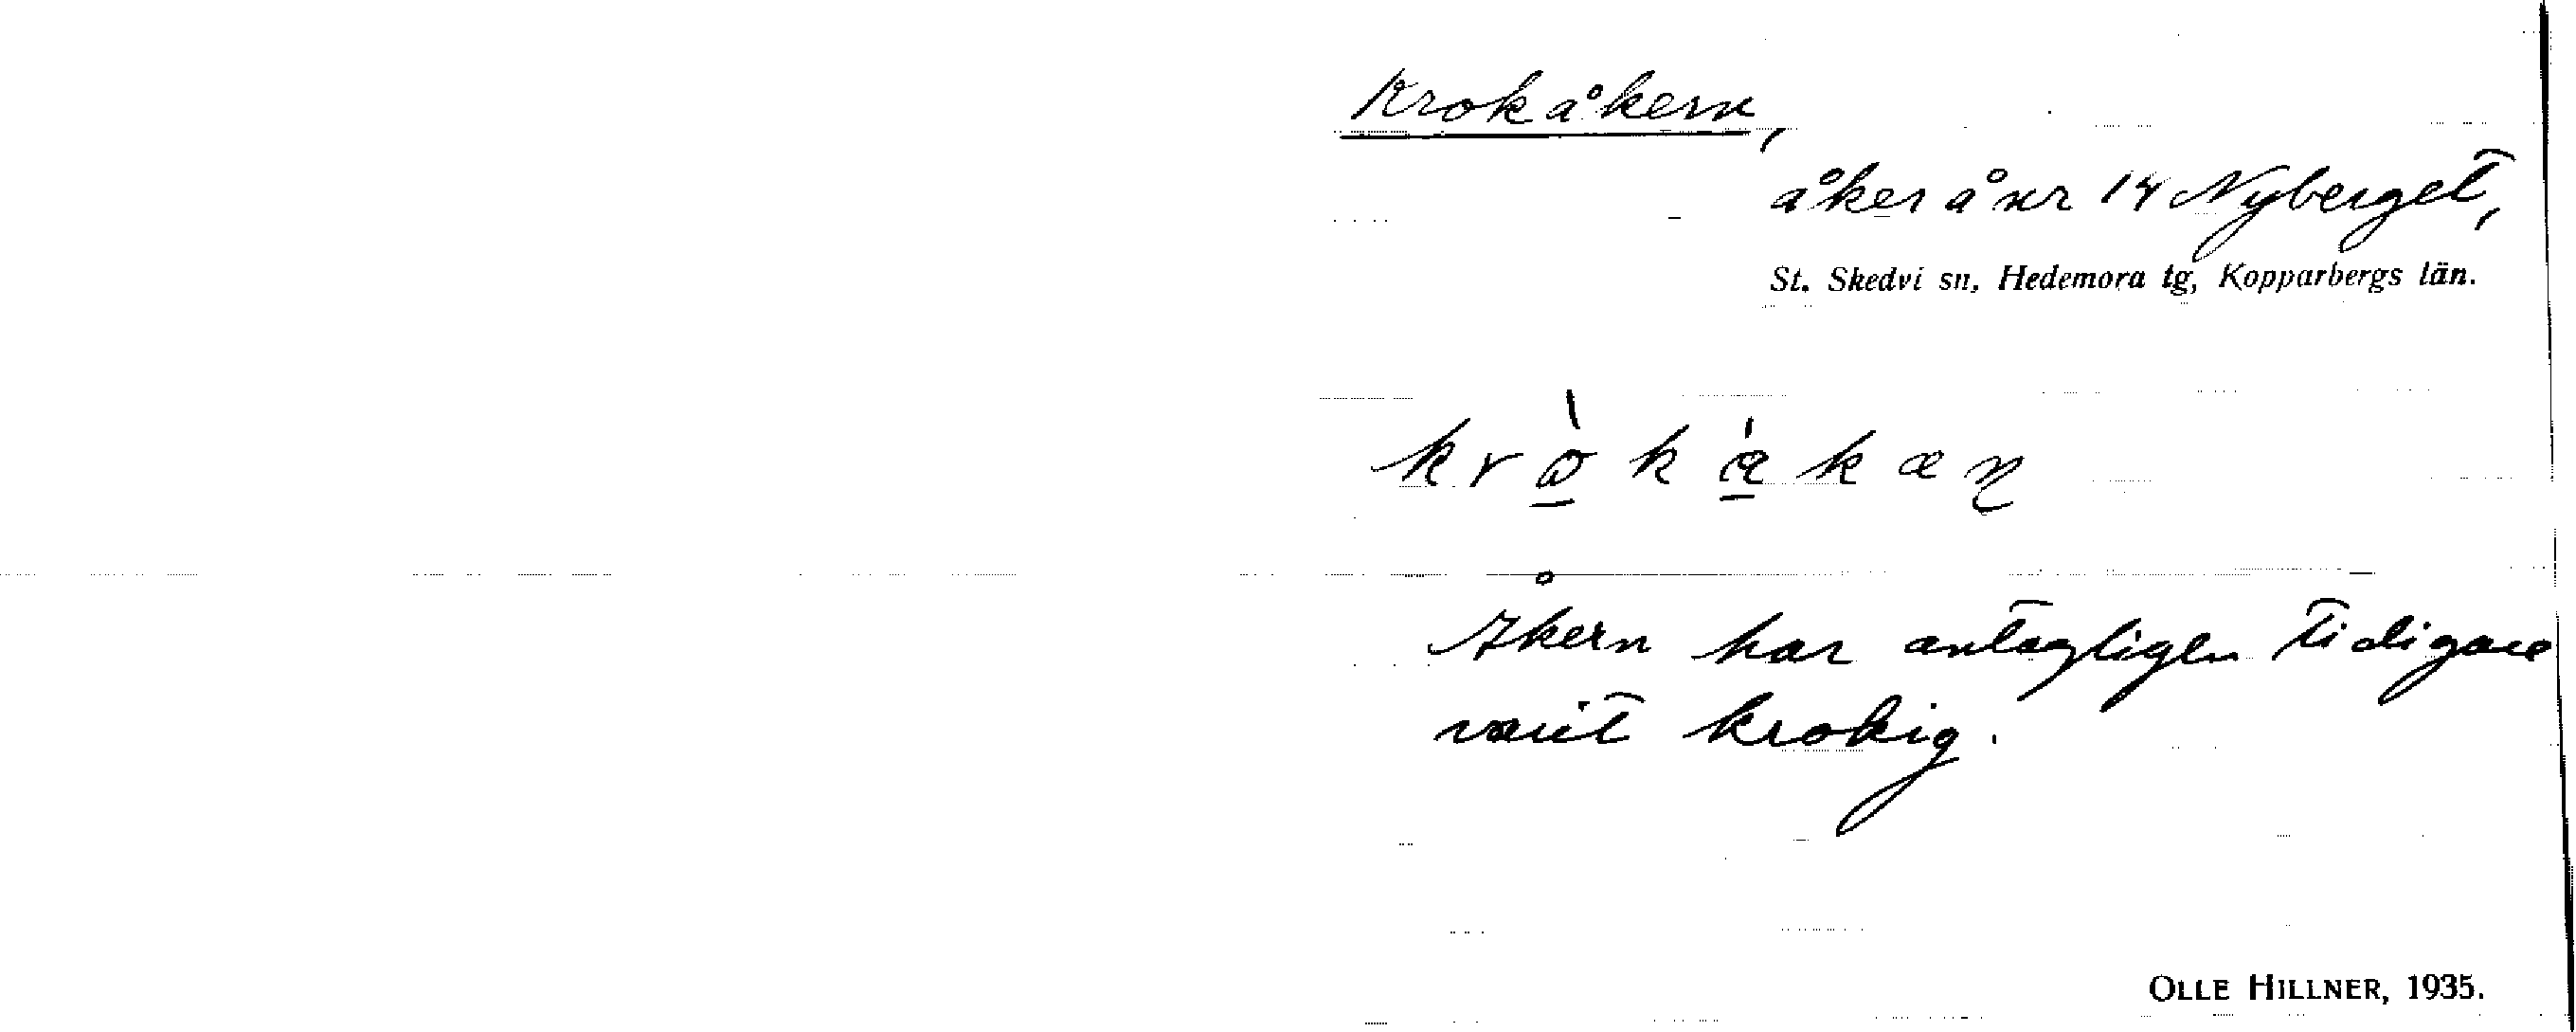 Krokåkern,
åker å nr 14 Nyberget,
St. Skedvi sn, Hedemora tg, Kopparbergs län.
Åkern har antagligen tidigare
varit krokig.
OLLE HILLNER, 1935.